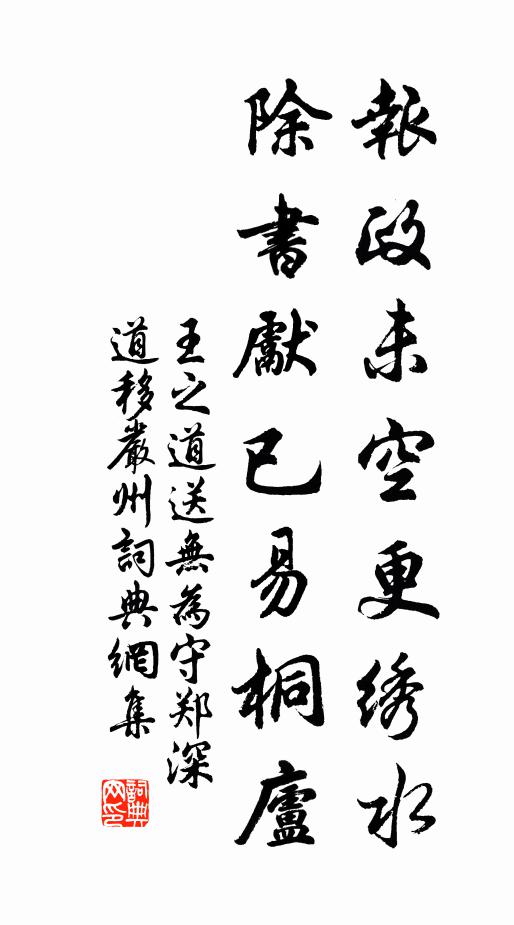 報政未空更绣水
除書獻已易桐廬
王之道送無為守郑深
道移嚴州詞典網集
詞典网印